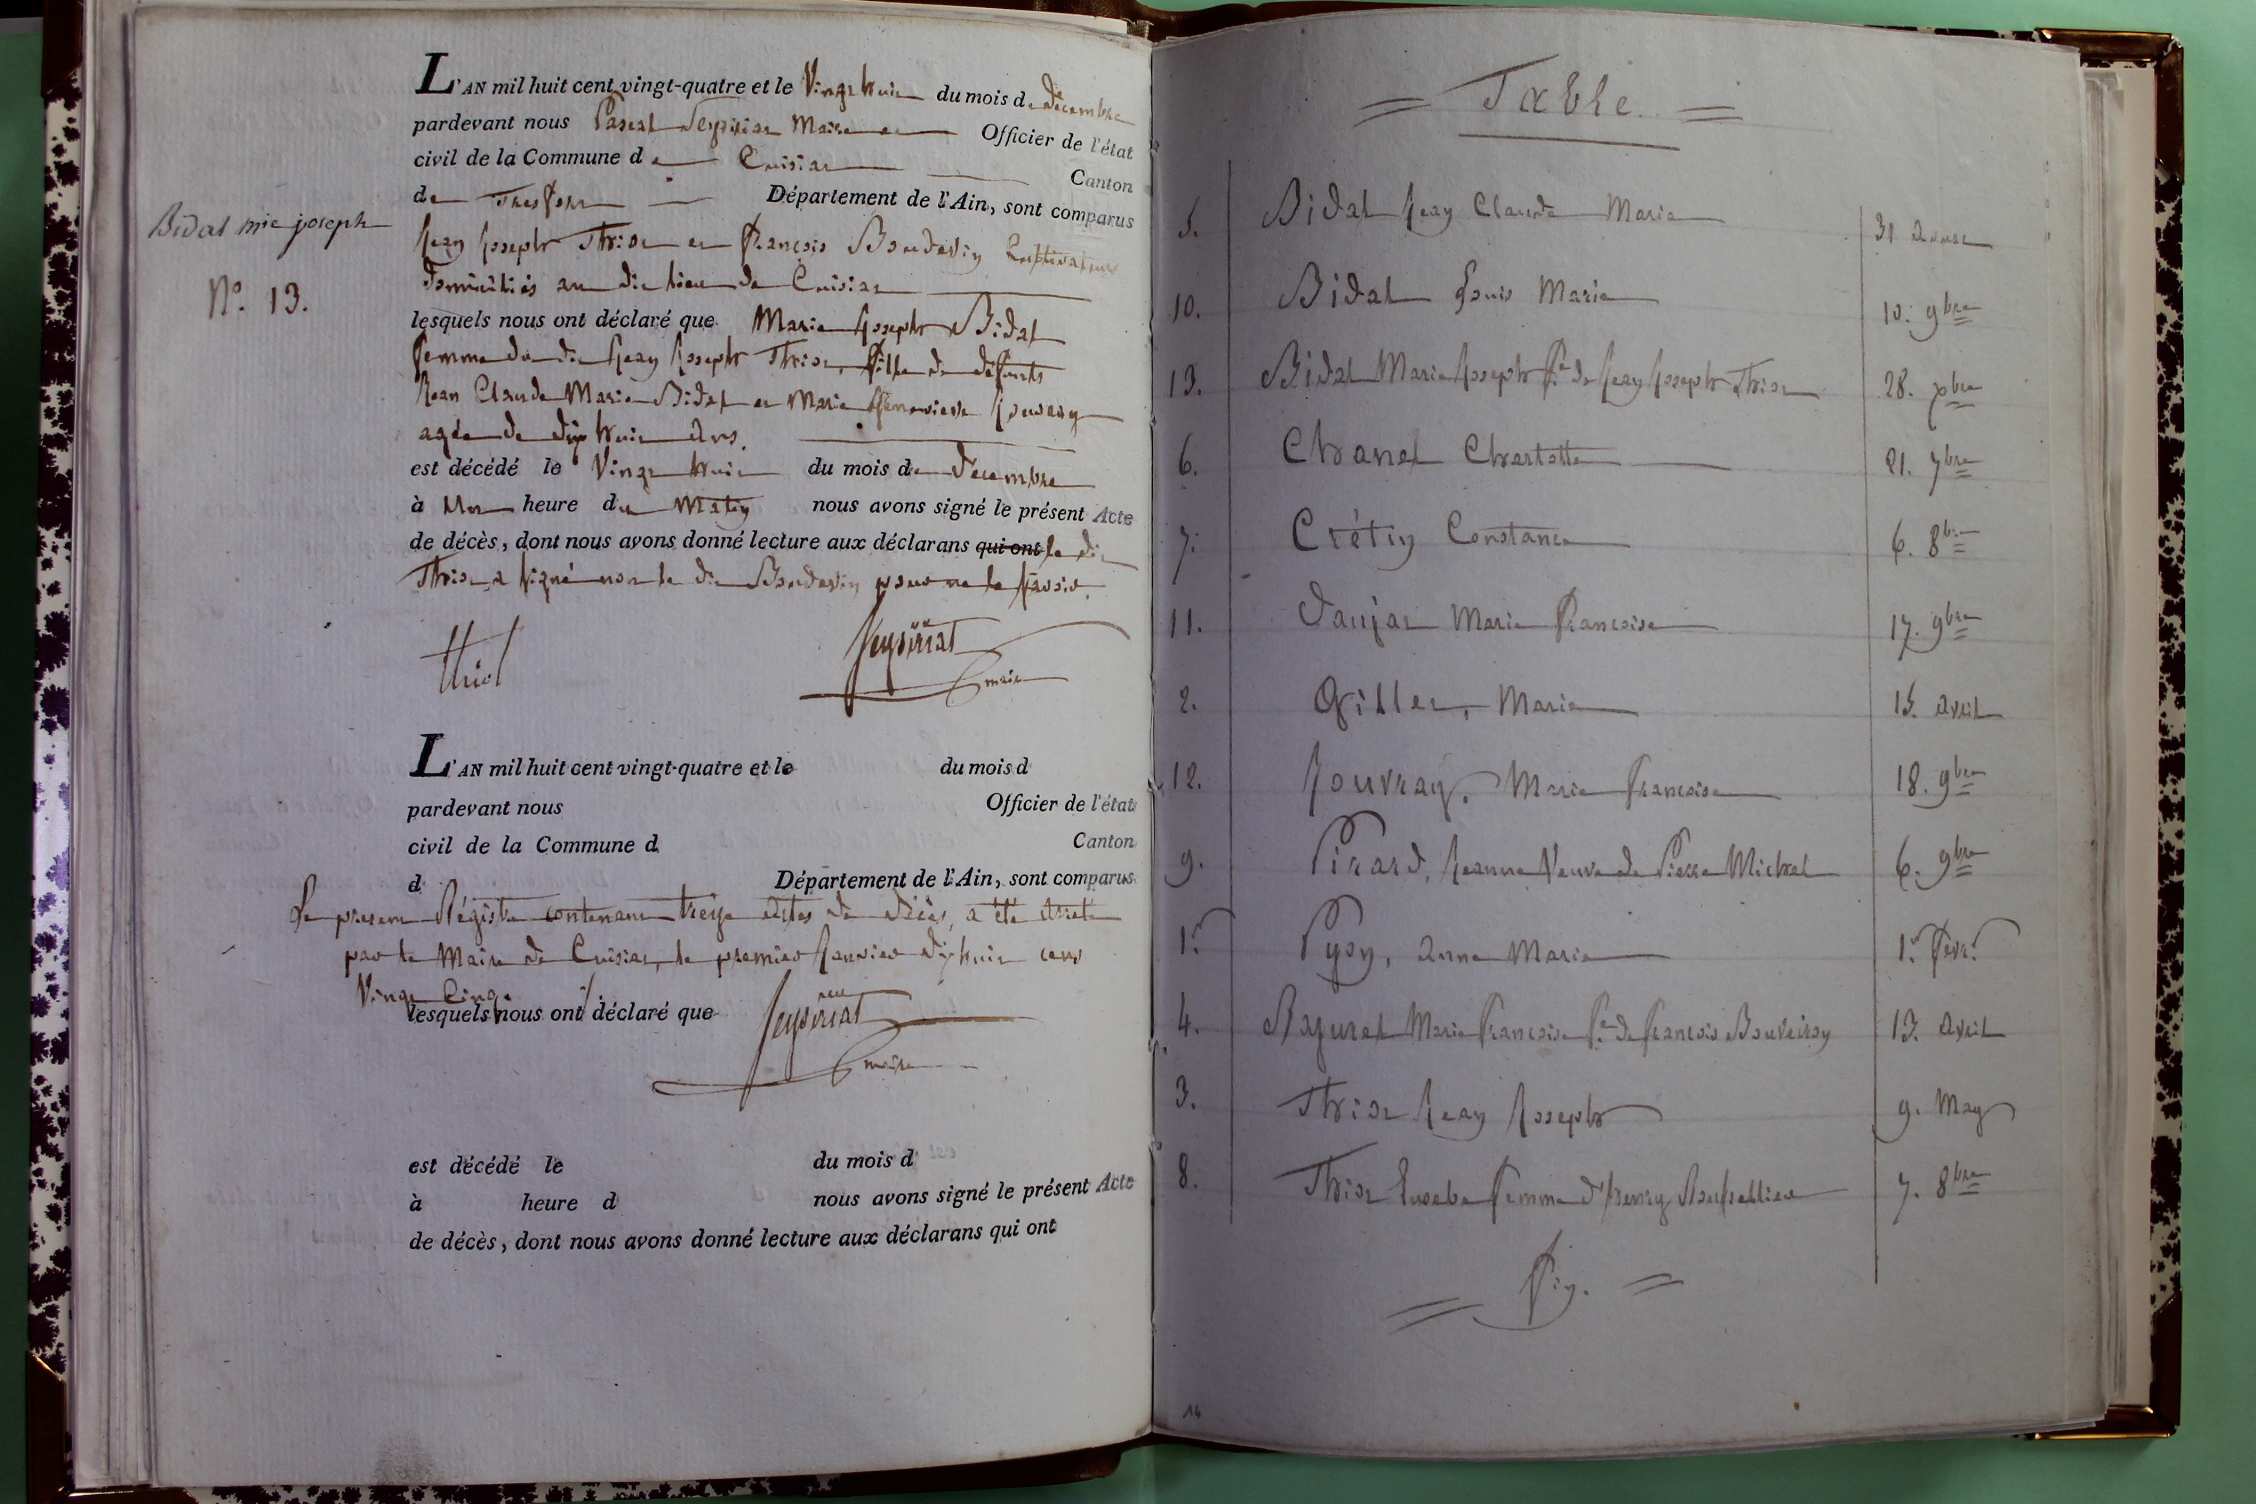 L'AN mil huit cent vingt-quatre et le Vingt huit du mois de décembre
pardevant nous Pascal Seysiriat Maire et Officier de l'état
civil de la Commune de Cuisiat Canton
de Treffort Département de l'Ain, sont comparus
Bidat Mie joseph
Jean Joseph Thiot et François Boudevin Cultivateurs
N° 13.
Domiciliés au dit lieu de Cuisiat
lesquels nous ont déclaré que Marie Joseph Bidat
femme du dit Jean Joseph Thiot, fille de défunts
Jean Claude Marie Bidat et Marie Genevieve Jouvray
agée de dix huit ans.
est décédé le Vingt huit du mois de décembre
à Une heure du Matin nous avons signé le présent Acte
de décès, dont nous avons donné lecture aux déclarans qui ont le dit
Thiot a signé non le dit Boudevin pour ne le savoir.
thiot
Seysiriat
maire
L'AN mil huit cent vingt-quatre et le du mois d
pardevant nous Officier de l'état
civil de la Commune d Canton
d Département de l'Ain, sont comparus
Le present Régistre contenant treize actes de décès, a été arreté
par le Maire de Cuisiat, le premier Janvier dix huit cent
Vingt Cinq.
lesquels nous ont déclaré que
Seysiriat
maire
est décédé le du mois d
à heure d nous avons signé le présent Acte
de décès, dont nous avons donné lecture aux déclarans qui ont
= Table =
5. Bidat Jean Claude Marie 31 Aoust
10. Bidat Louis Marie 10. 9bre
13. Bidat Marie Joseph fe. de Jean Joseph Thiot 28. Xbre
6. Chanel Charlotte 21. 7bre
7. Crétin Constance 6. 8bre
11. Daujat Marie Françoise 17. 9bre
2. Gillet, Marie 15. Avril
12. Jouvray, Marie Françoise 18. 9bre
9. Pirard, Jeanne Veuve de Pierre Michel 6. 9bre
1er Pyon, Anne Marie 1er févr.
4. Marie Françoise fe. de François Bouveiron 13. Avril
3. Thiot Jean Joseph 9. May
8. Thiot femme d'henry 7. 8bre
= Fin. =
14